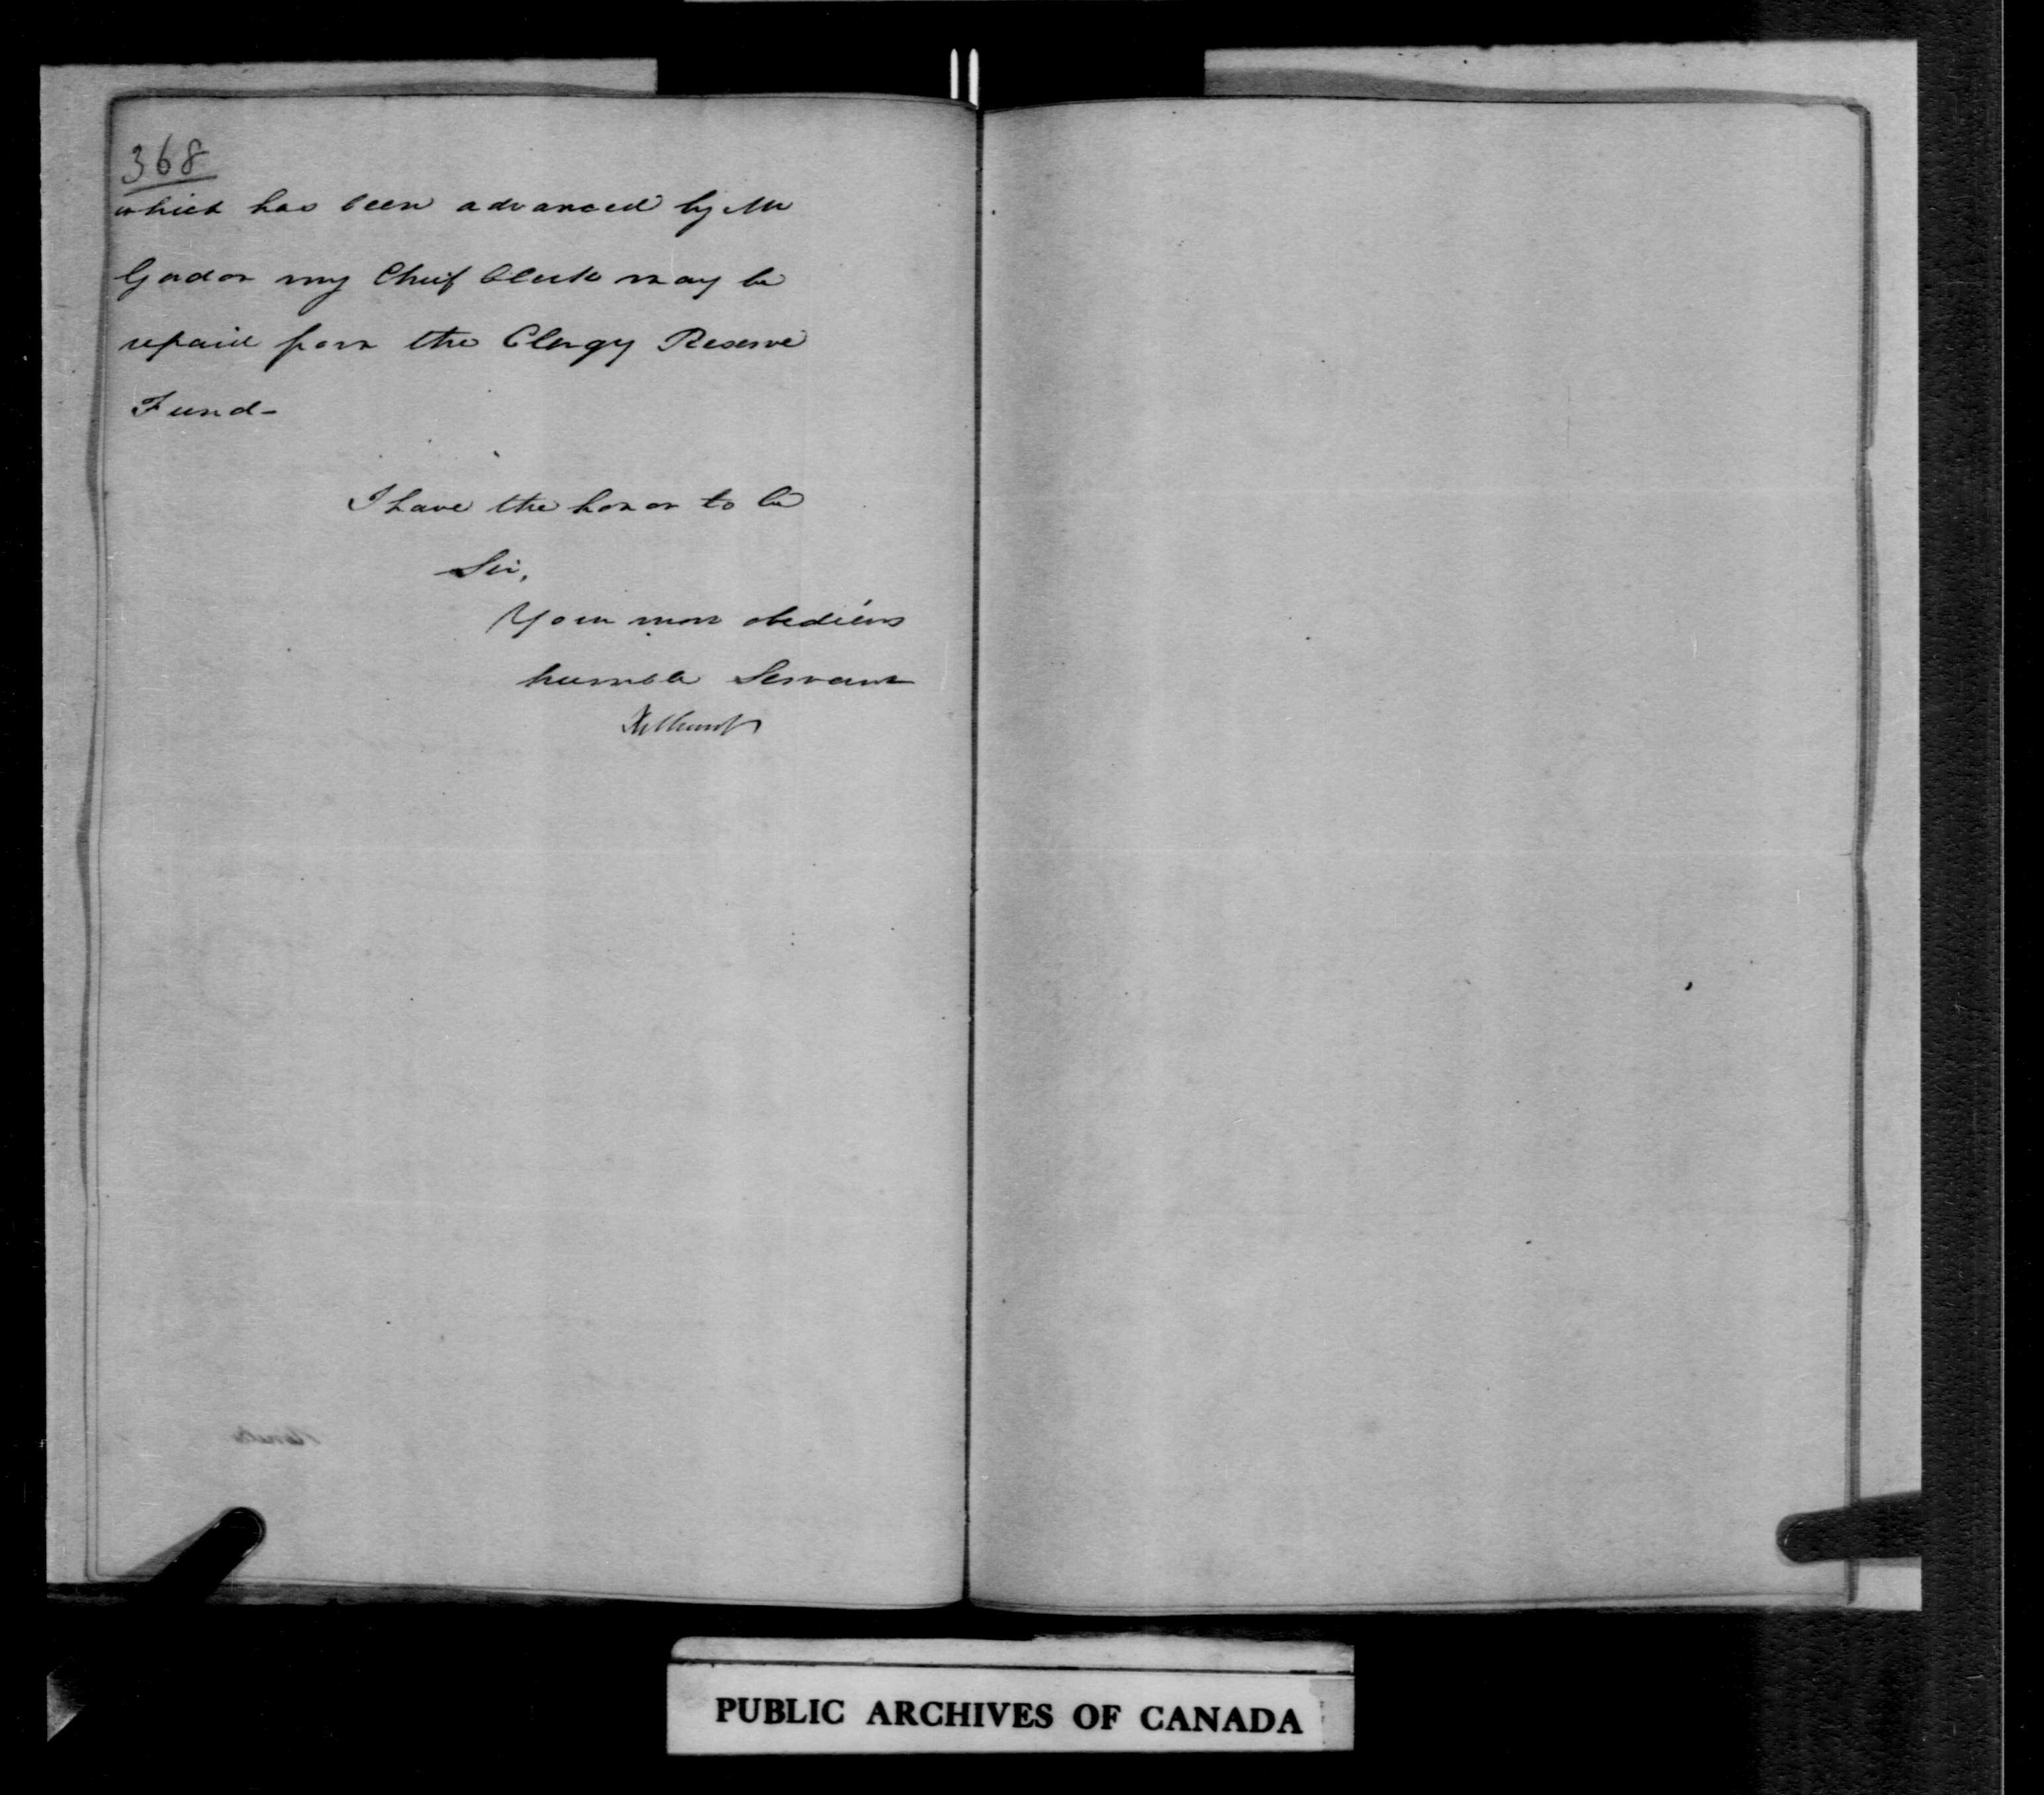 368
which has been advanced by Mr
my Chief Clerk may be
repaid from the Clergy Reserve
Fund-
I have the honor to be
Sir,
Your most obedient
humble Servant
PUBLIC ARCHIVES OF CANADA